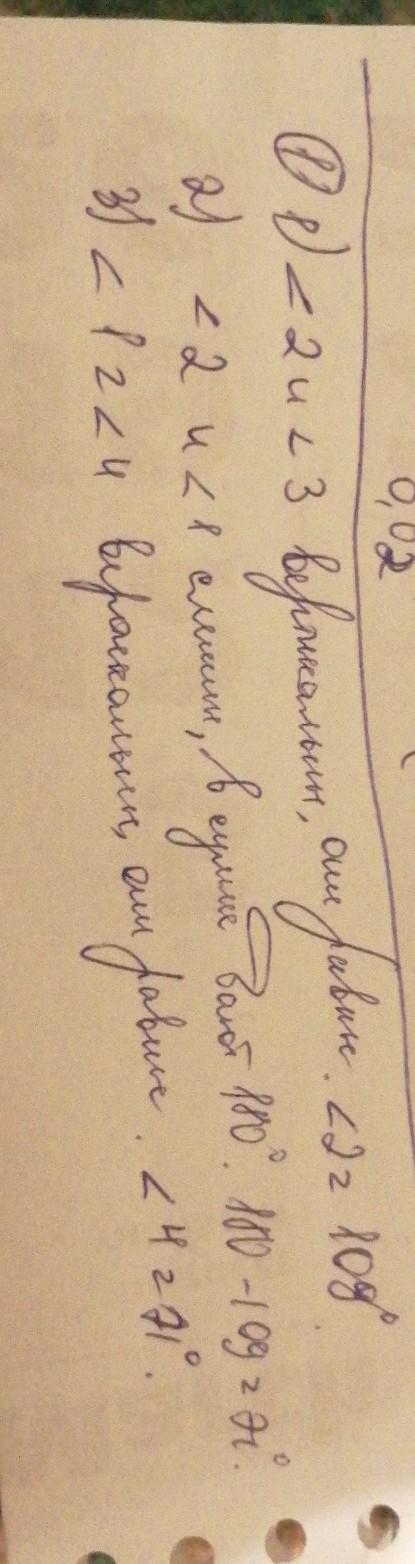 0,02
① 1) < 2 и < 3 вертикальны, они равны. < 2 = 109°.
2) < 2 и < 1 смежны, в сумме дают 180°. 180 - 109 = 71°.
3) < 1 = < 4 вертикальны, они равны. < 4 = 71°.